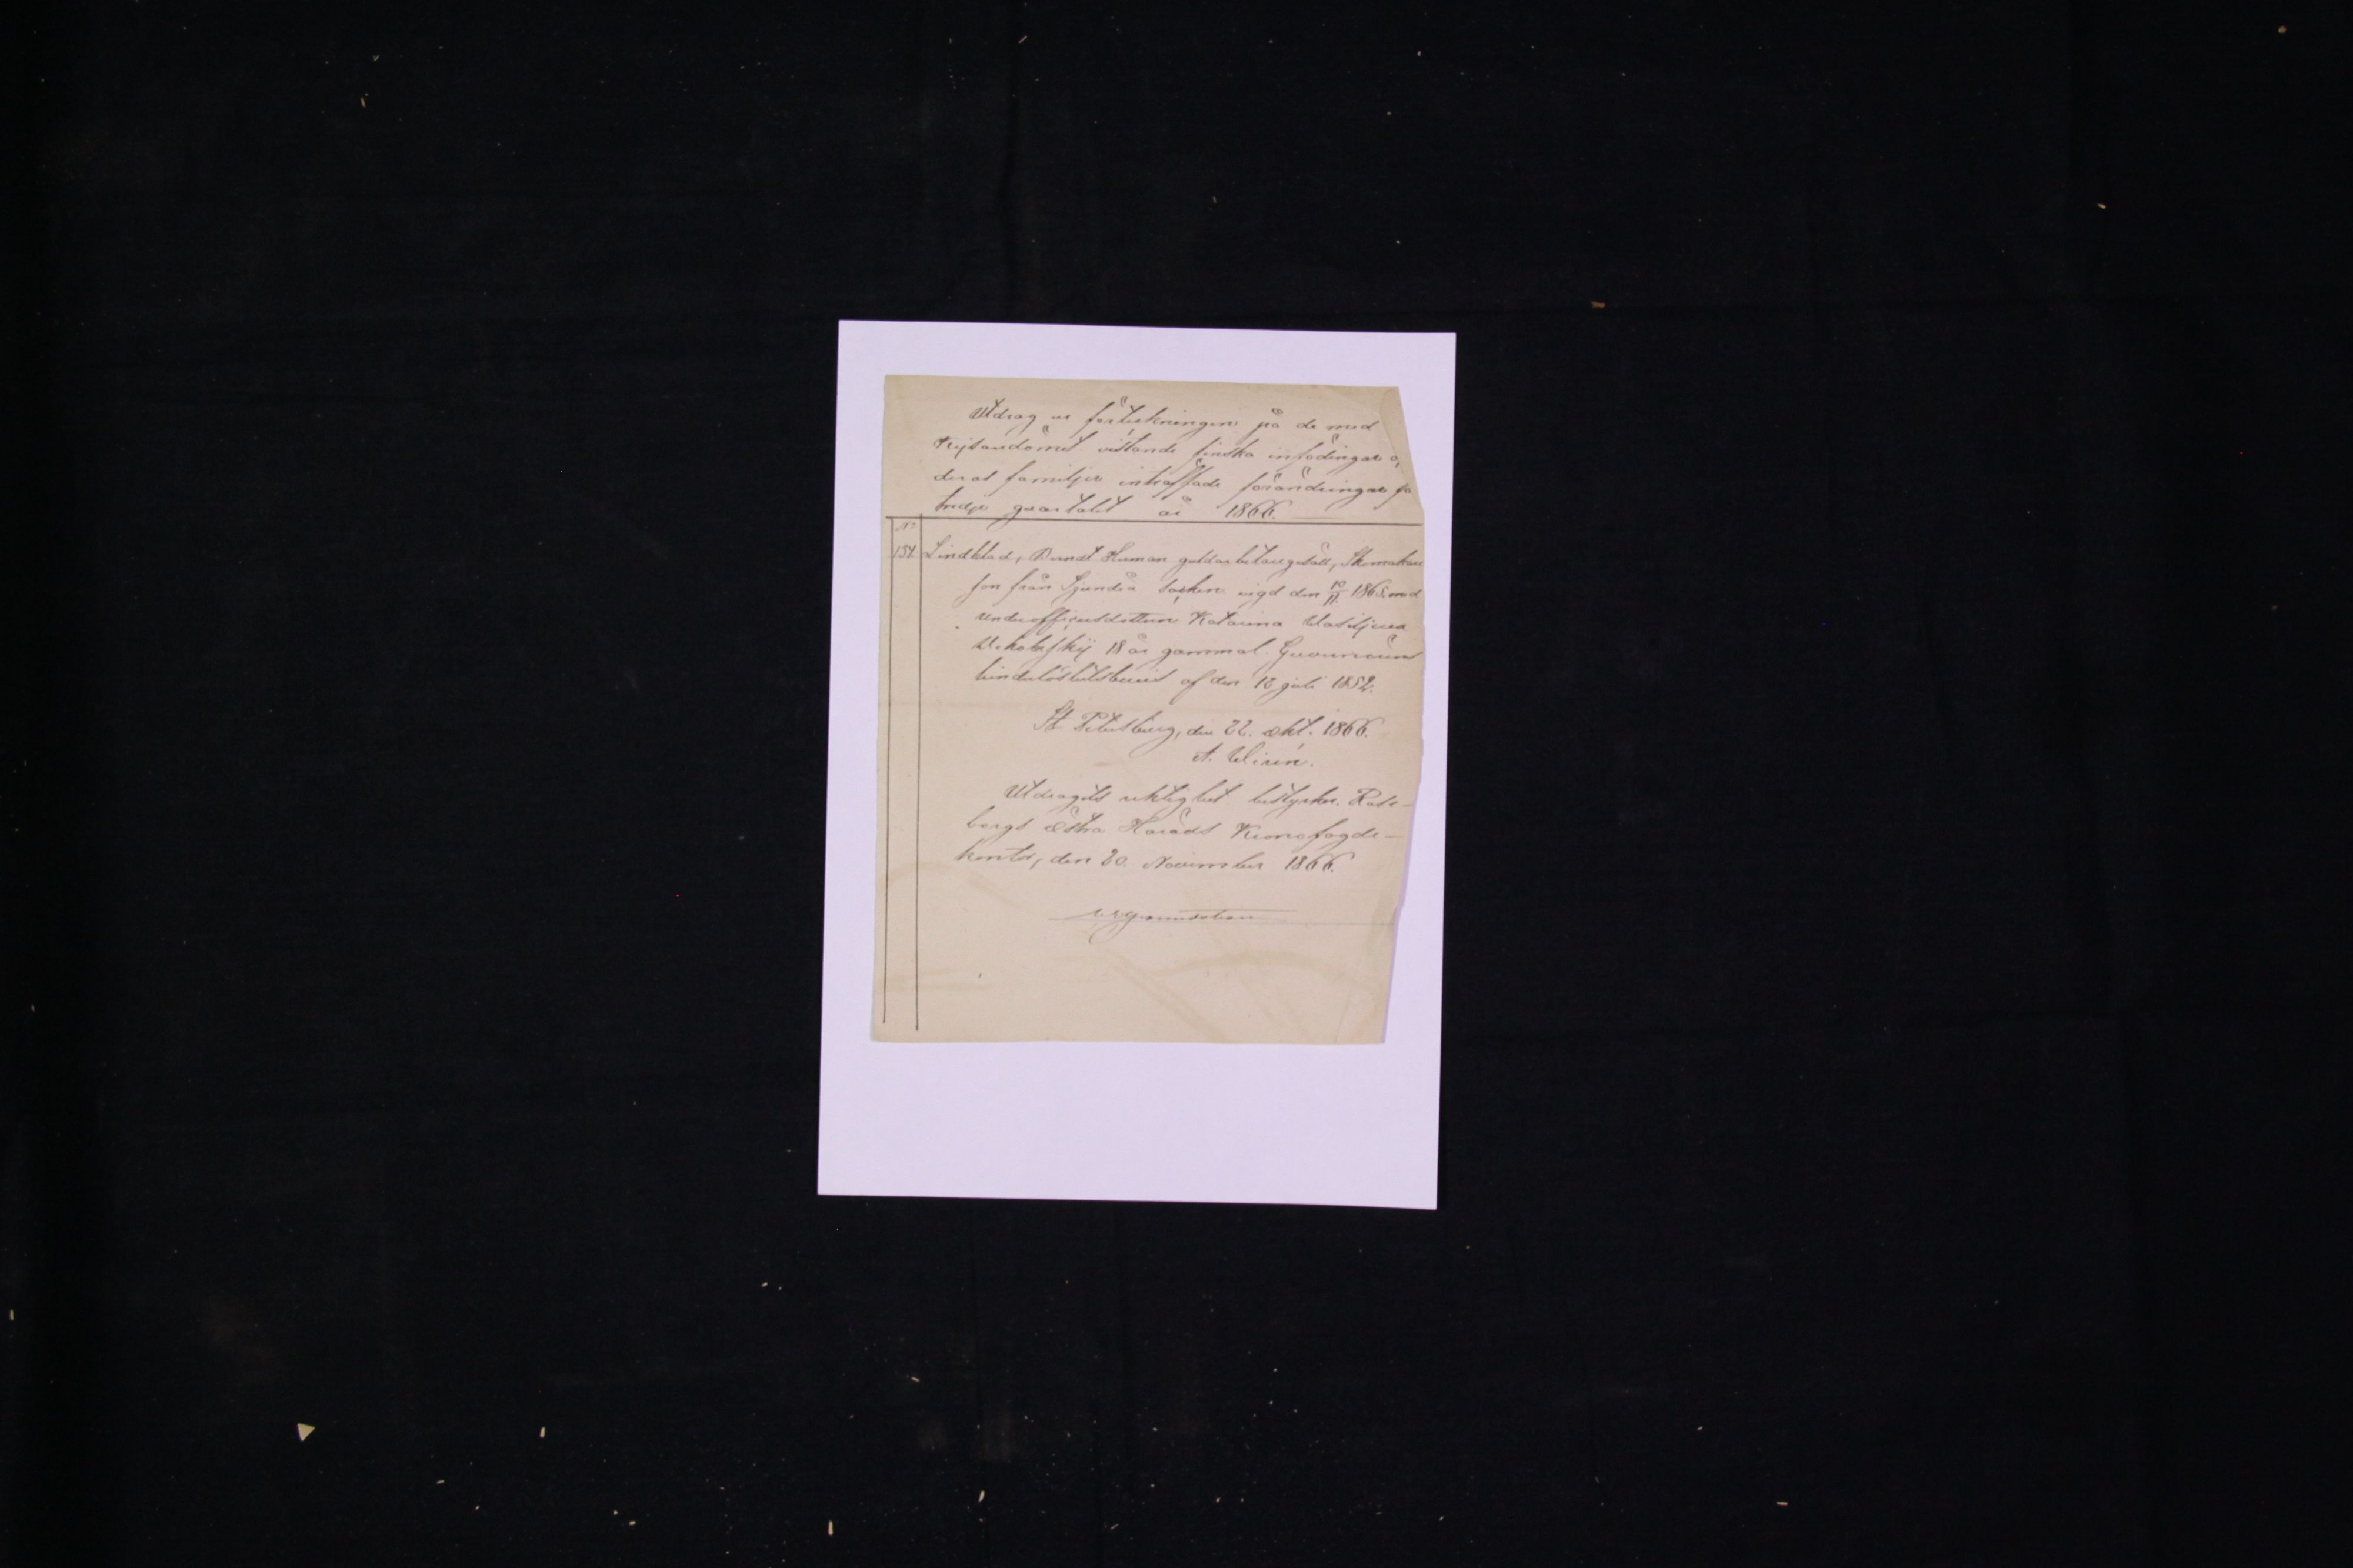 Utdrag ur förteckningen på de med
Kejsardömet vistande finska infödingar o,
deras familjer inträffade förändringar fö
tredje quartalet år 1866.
No
134. Lindblad, Berndt Herman guldarbetaregesäll, Skomakare
son från Sjundeå socken vigd den 10/11. 1865. med
underofficersdottren Katarina Wasiljewa
Nikolafskij 18 år gammal. Guvernörens
hinderlöshetsbevis af den 12 juli 1852.
St Petersburg, den 22. Okt. 1866.
A. Wirén.
Utdragets riktighet bestyrker. Rase-
borgs Östra Härads Kronofogde-
kontor, den 20. November 1866.